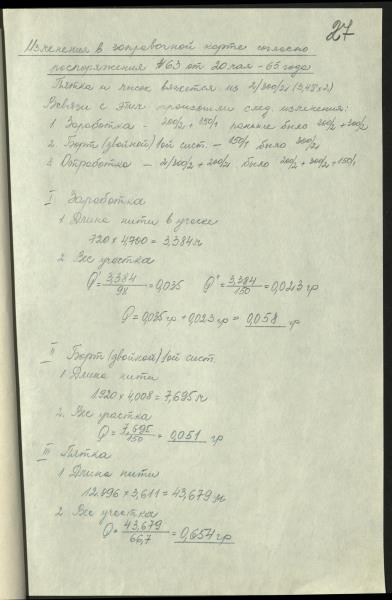 27
Изменения в заправочной карте согласно
распоряжения №63 от 20 мая - 65 года
Пятка и мысок вяжется из 2/300/2
В связи с этим произошли след. изменения:
1 Заработка - 200/2 + 150/1 раньше было 200/2 + 300/2
2. Борт (двойной) 1ой сист. - 150/1 было 300/2
3 Отработка - 2/300/2 + 200/2 было 200/2 + 300/2 + 150/1
I Заработка
1 Длина нити в участке
720 x 4,700 = 3,384 м
2 Вес участка
Q' = 3,384/98 = 0,035 Q" = 3,384/150 = 0,023 гр
Q = 0,035 гр + 0,023 гр = 0,058 гр
II Борт (двойной) 1ой сист.
1 Длина нити
1920 x 4,008 = 7,695 м
2. Вес участка
Q = 7,695/150 = 0,051 гр
III Пятка
1 Длина нити
12.096 x 3,611 = 43,679 м
2 Вес участка
Q = 43,679/66,7 = 0,654 гр